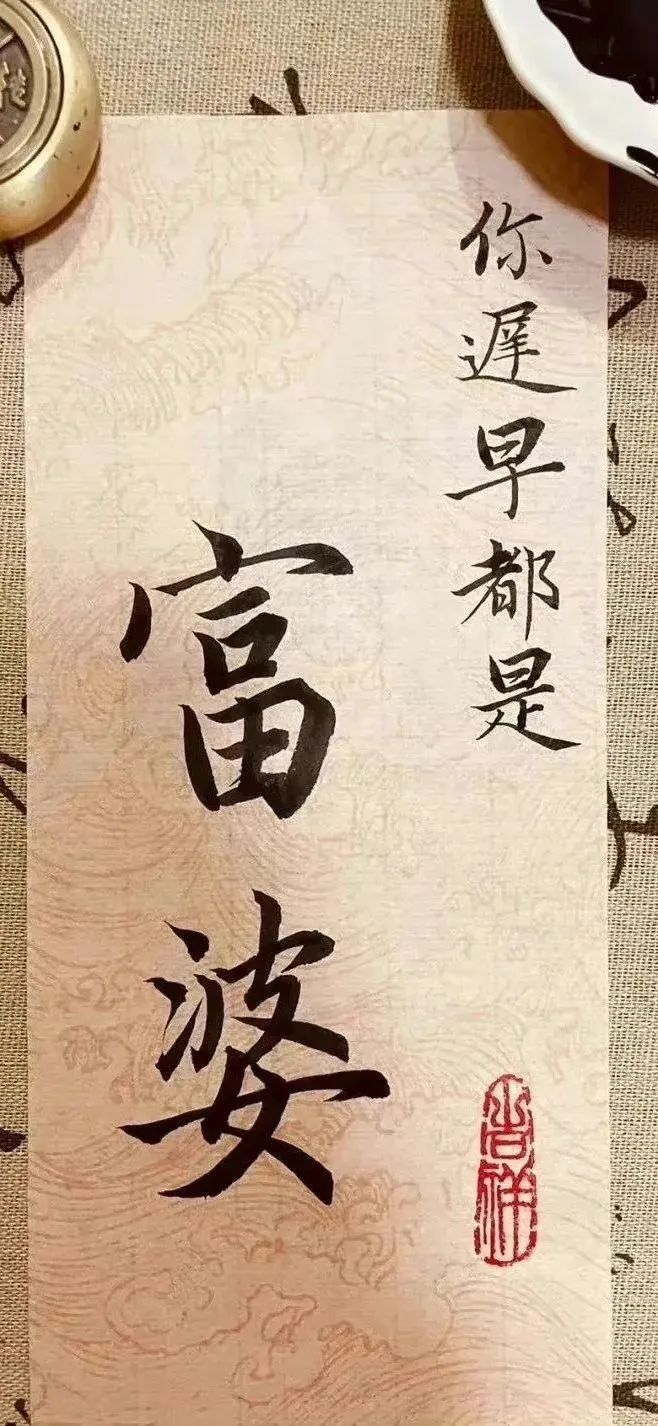 你遲早都是
富婆
吉祥